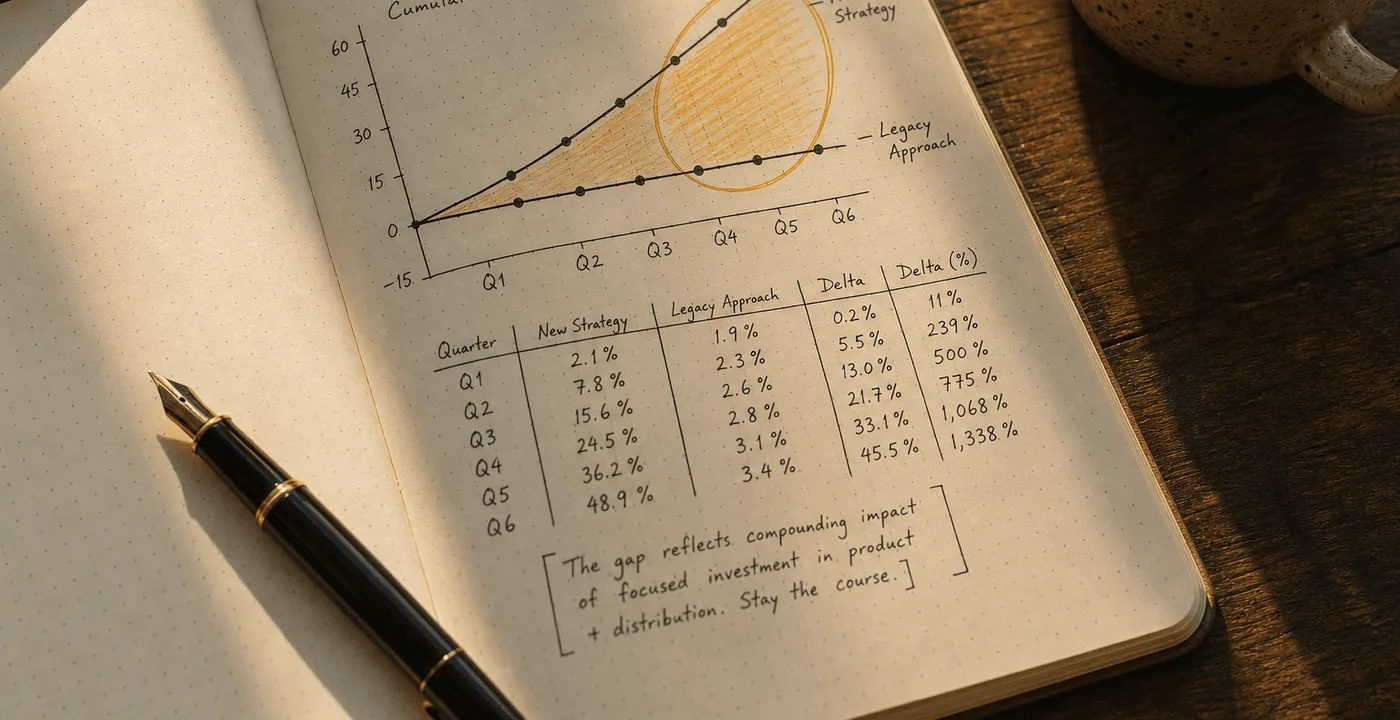 60
45
30
15
0
-15
Strategy
Legacy
Approach
Q1 Q2 Q3 Q4 Q5 Q6
Quarter New Strategy Legacy Approach Delta Delta (%)
Q1 2.1% 1.9% 0.2% 11%
Q2 7.8% 2.3% 5.5% 239%
Q3 15.6% 2.6% 13.0% 500%
Q4 24.5% 2.8% 21.7% 775%
Q5 36.2% 3.1% 33.1% 1,068%
Q6 48.9% 3.4% 45.5% 1,338%
[The gap reflects compounding impact
of focused investment in product
+ distribution. Stay the course.]